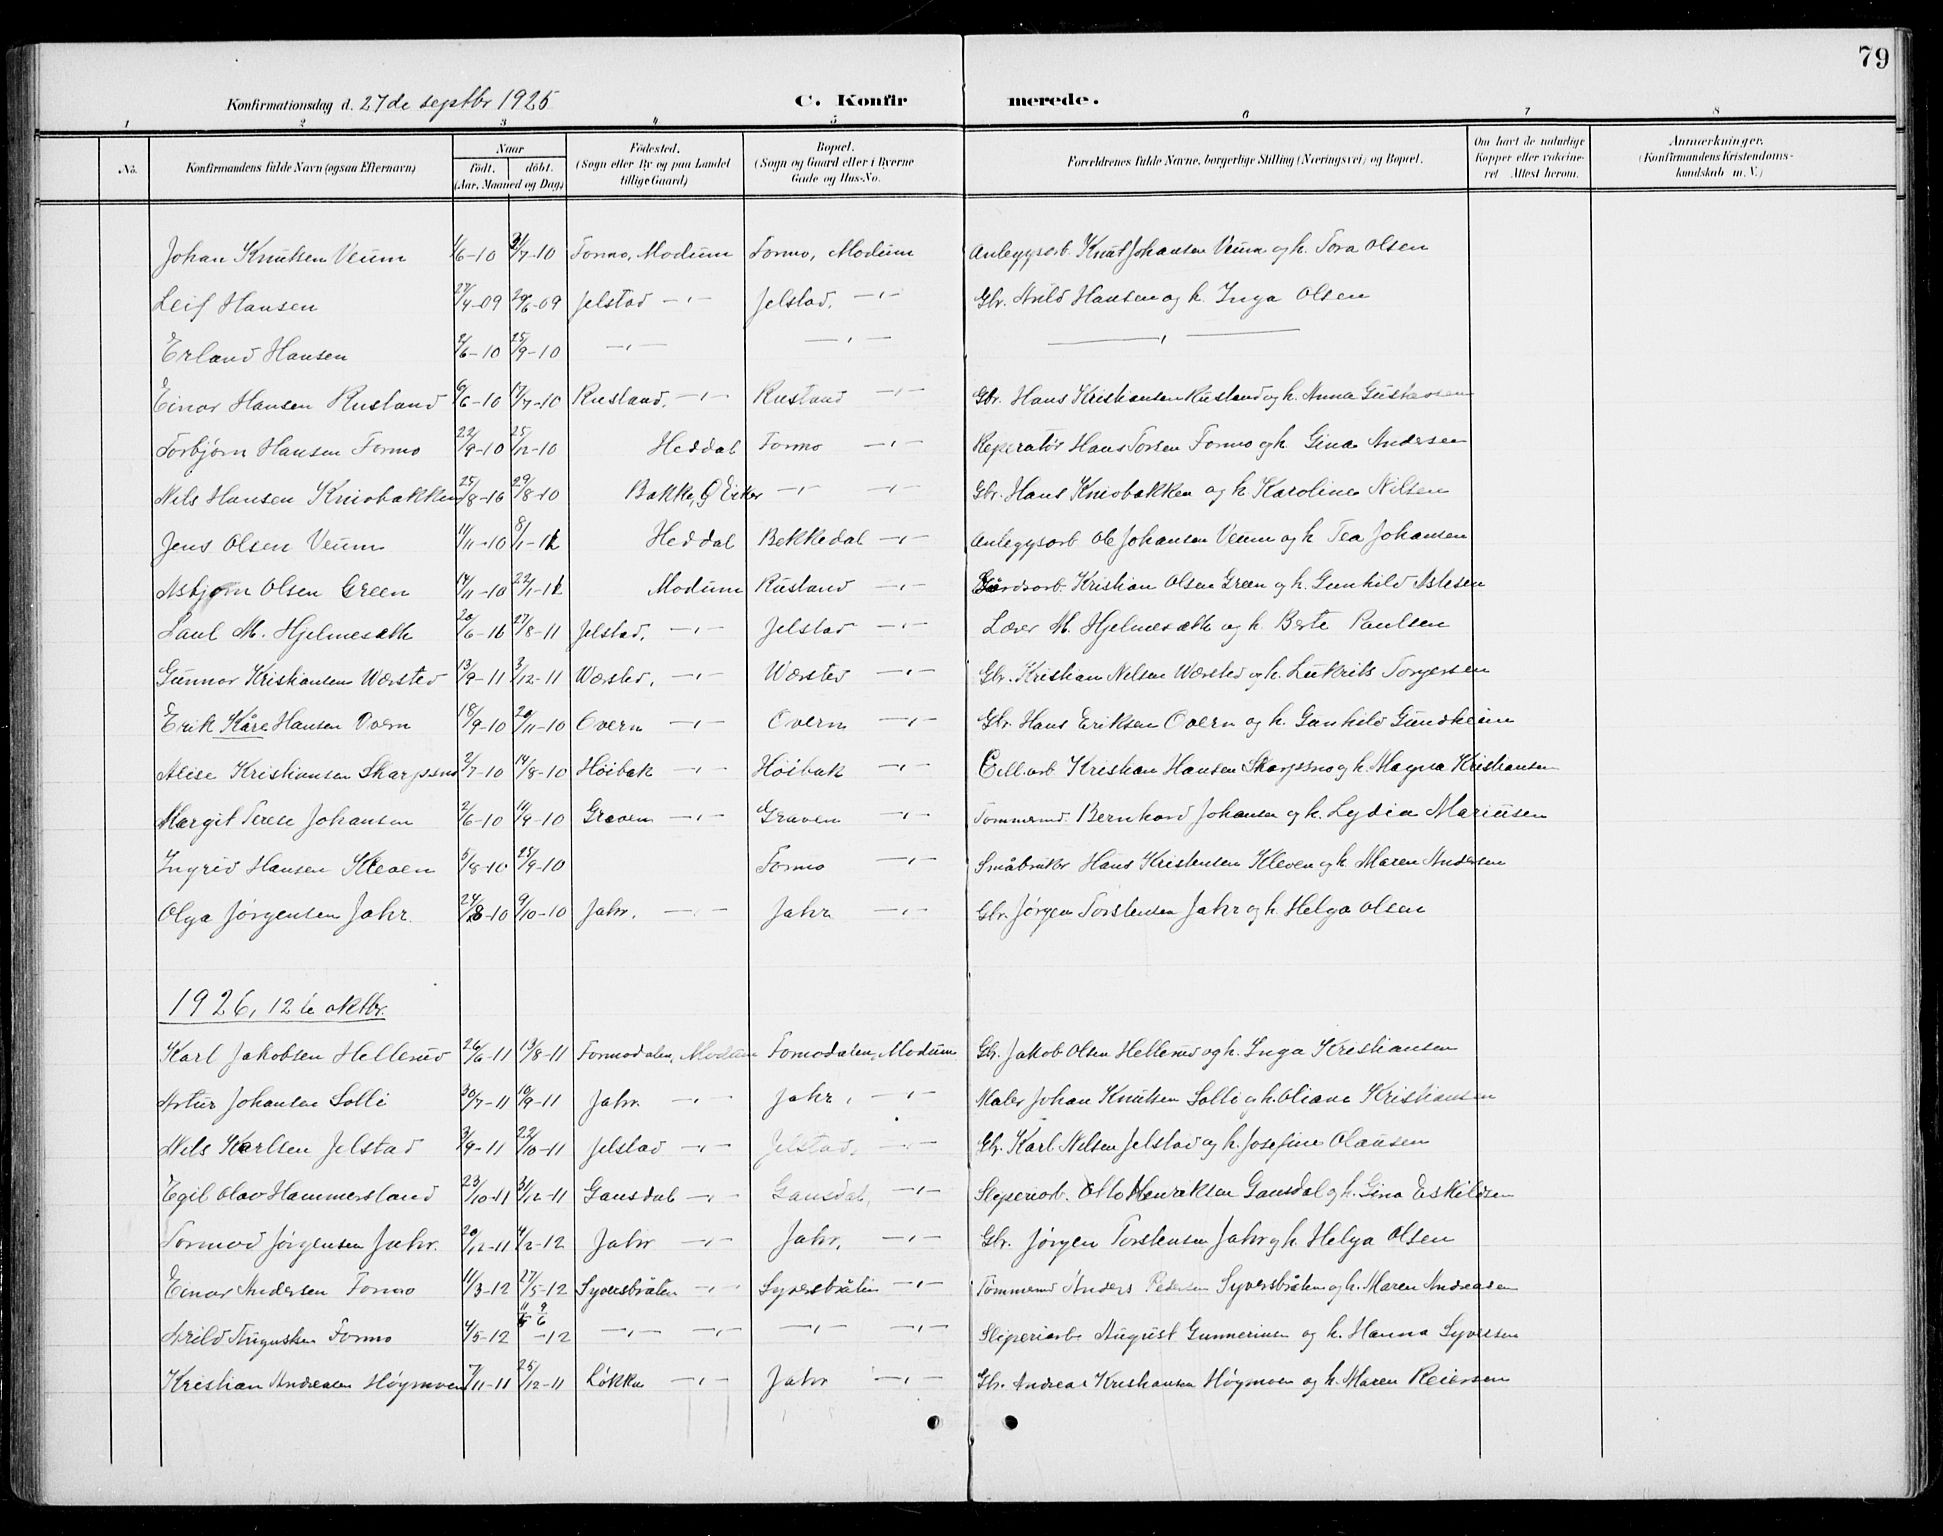 79
Konfirmationsdag d. 27de septbr 1925 C. Konfirmerede.
1 2 3 4 5 6 7 8
No. Konfirmandens fulde Navn (ogsaa Efternavn) Naar født. døbt. (Aar, Maaned og Dag) Fødested. (Sogn eller By og paa Landet tillige Gaard) Bopæl. (Sogn og Gaard eller i Byerne Gade og Hus-No. Forældrenes fulde Navne, borgerlige Stilling (Næringsvei) og Bopæl. Om havt de naturlige Kopper eller vakcineret Attest herom. Anmerkninger. (Konfirmandens Kristendomskundskab m. V.)
Johan Knutsen Veum 1/6-10 31/7-10 Formo, Modum Formo, Modum Anleggsarb. Knut Johansen Veum og h. Tora Olsen
Leif Hansen 27/4-09 20/6-09 Jelstad —"— Jelstad, —"— Gbr. Arild Hansen og h. Inga Olsen
Erland Hansen 2/6-10 25/9-10 —"— —"— —"—
Einar Hansen Rustand 6/6-10 17/7-10 Rustand, —"— Rustand —"— Gbr. Hans Kristiansen Rustand og h. Anna Gustavsen
Torbjørn Hansen Formo 22/9-10 25/12-10 Heddal Formo —"— Reperatør Hans Torsen Formo og h. Gina Andersen
Nils Hansen Kniobakken 25/8-10 29/8-10 Bakke, Ø Eiker —"— —"— Gbr. Hans Kniobakken og h. Karoline Nilsen
Jens Olsen Veum 11/11-10 8/1-11 Heddal Bekkedal —"— Anleggsarb Ole Johansen Veum og h. Tea Johansen
Asbjørn Olsen Green 14/11-10 22/1-11 Modum Rustand —"— Gårdsarb. Kristian Olsen Green og h. Gunhild Aslesen
Paul M. Hjelmesæth 20/6-10 27/8-11 Jelstad, —"— Jelstad —"— Lærer M. Hjelmesæth og h. Berte Paulsen
Gunnar Kristiansen Wærsted 13/9-11 3/12-11 Wærsted, —"— Wærsted —"— Gbr. Kristian Nilsen Wærsted og h. Lukrits Torgersen
Erik Kåre Hansen Overn 18/9-10 20/11-10 Overn —"— Overn —"— Gbr Hans Eriksen Overn og h. Gunhild Gundheim
Alise Kristiansen Skarpsno 2/7-10 14/8-10 Høibak —"— Høibak —"— Cell.arb Kristian Hansen Skarpsno og h. Magna Kristiansen
Margit Terese Johansen 2/6-10 11/9-10 Graven —"— Graven —"— Tømmermd. Bernhard Johansen og h. Lydia Mariusen
Ingrid Hansen Kleven 5/8-10 25/9-10 Formo —"— Småbruker Hans Kristensen Kleven og h. Maren Andersen
Olga Jørgensen Jahr. 24/8-10 9/10-10 Jahr, —"— Jahr —"— Gbr. Jørgen Torstensen Jahr og h. Helga Olsen
1926, 12te oktbr.
Karl Jakobsen Hellerud 26/6-11 13/8-11 Formodalen, Modum Formodalen, Modum Gbr. Jakob Olsen Hellerud og h. Inga Kristiansen
Artur Johansen Solli 30/7-11 10/9-11 Jahr —"— Jahr, —"— Maler Johan Knutsen Solli og h. Oliane Kristiansen
Nils Karlsen Jelstad 3/9-11 22/10-11 Jelstad —"— Jelstad, —"— Gbr. Karl Nilsen Jelstad og h. Josefine Olausen
Egil Olav Hammersland 23/10-11 31/12-11 Gansdal —"— Gansdal, —"— Sliperiarb. Otto Henriksen Gansdal og h. Gina Eskildsen
Tormod Jørgensen Jahr. 20/12-11 4/2-12 Jahr —"— Jahr, —"— Gbr. Jørgen Torstensen Jahr og h. Helga Olsen
Einar Andersen Formo 11/3-12 27/5-12 Syversbråten —"— Syversbråten —"— Tømmermd Anders Pedersen Syversbråten og h. Maren Andreasen
Arild Augustsen Formo 4/5-12 9/6-12 —"— —"— —"— —"— Sliperiarb. August Gunneriusen og h. Hanna Syversen
Kristian Andreasen Høymoen 7/11-11 25/12-11 Løkka —"— Jahr —"— Gbr. Andreas Kristiansen Høgmoen og h. Maren Reiersen